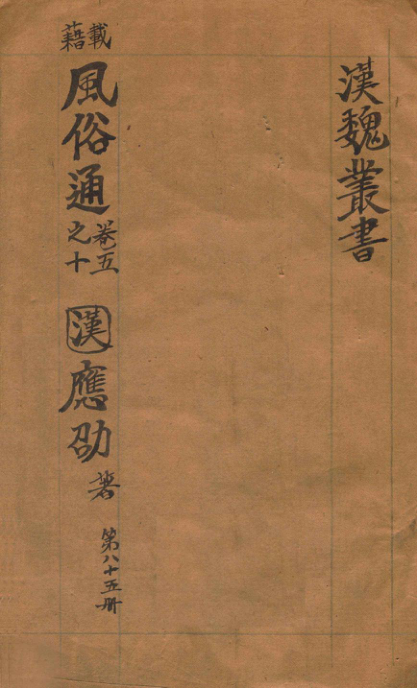 漢魏叢書
載籍
風俗通卷五之十 漢 應劭著
第八十五册